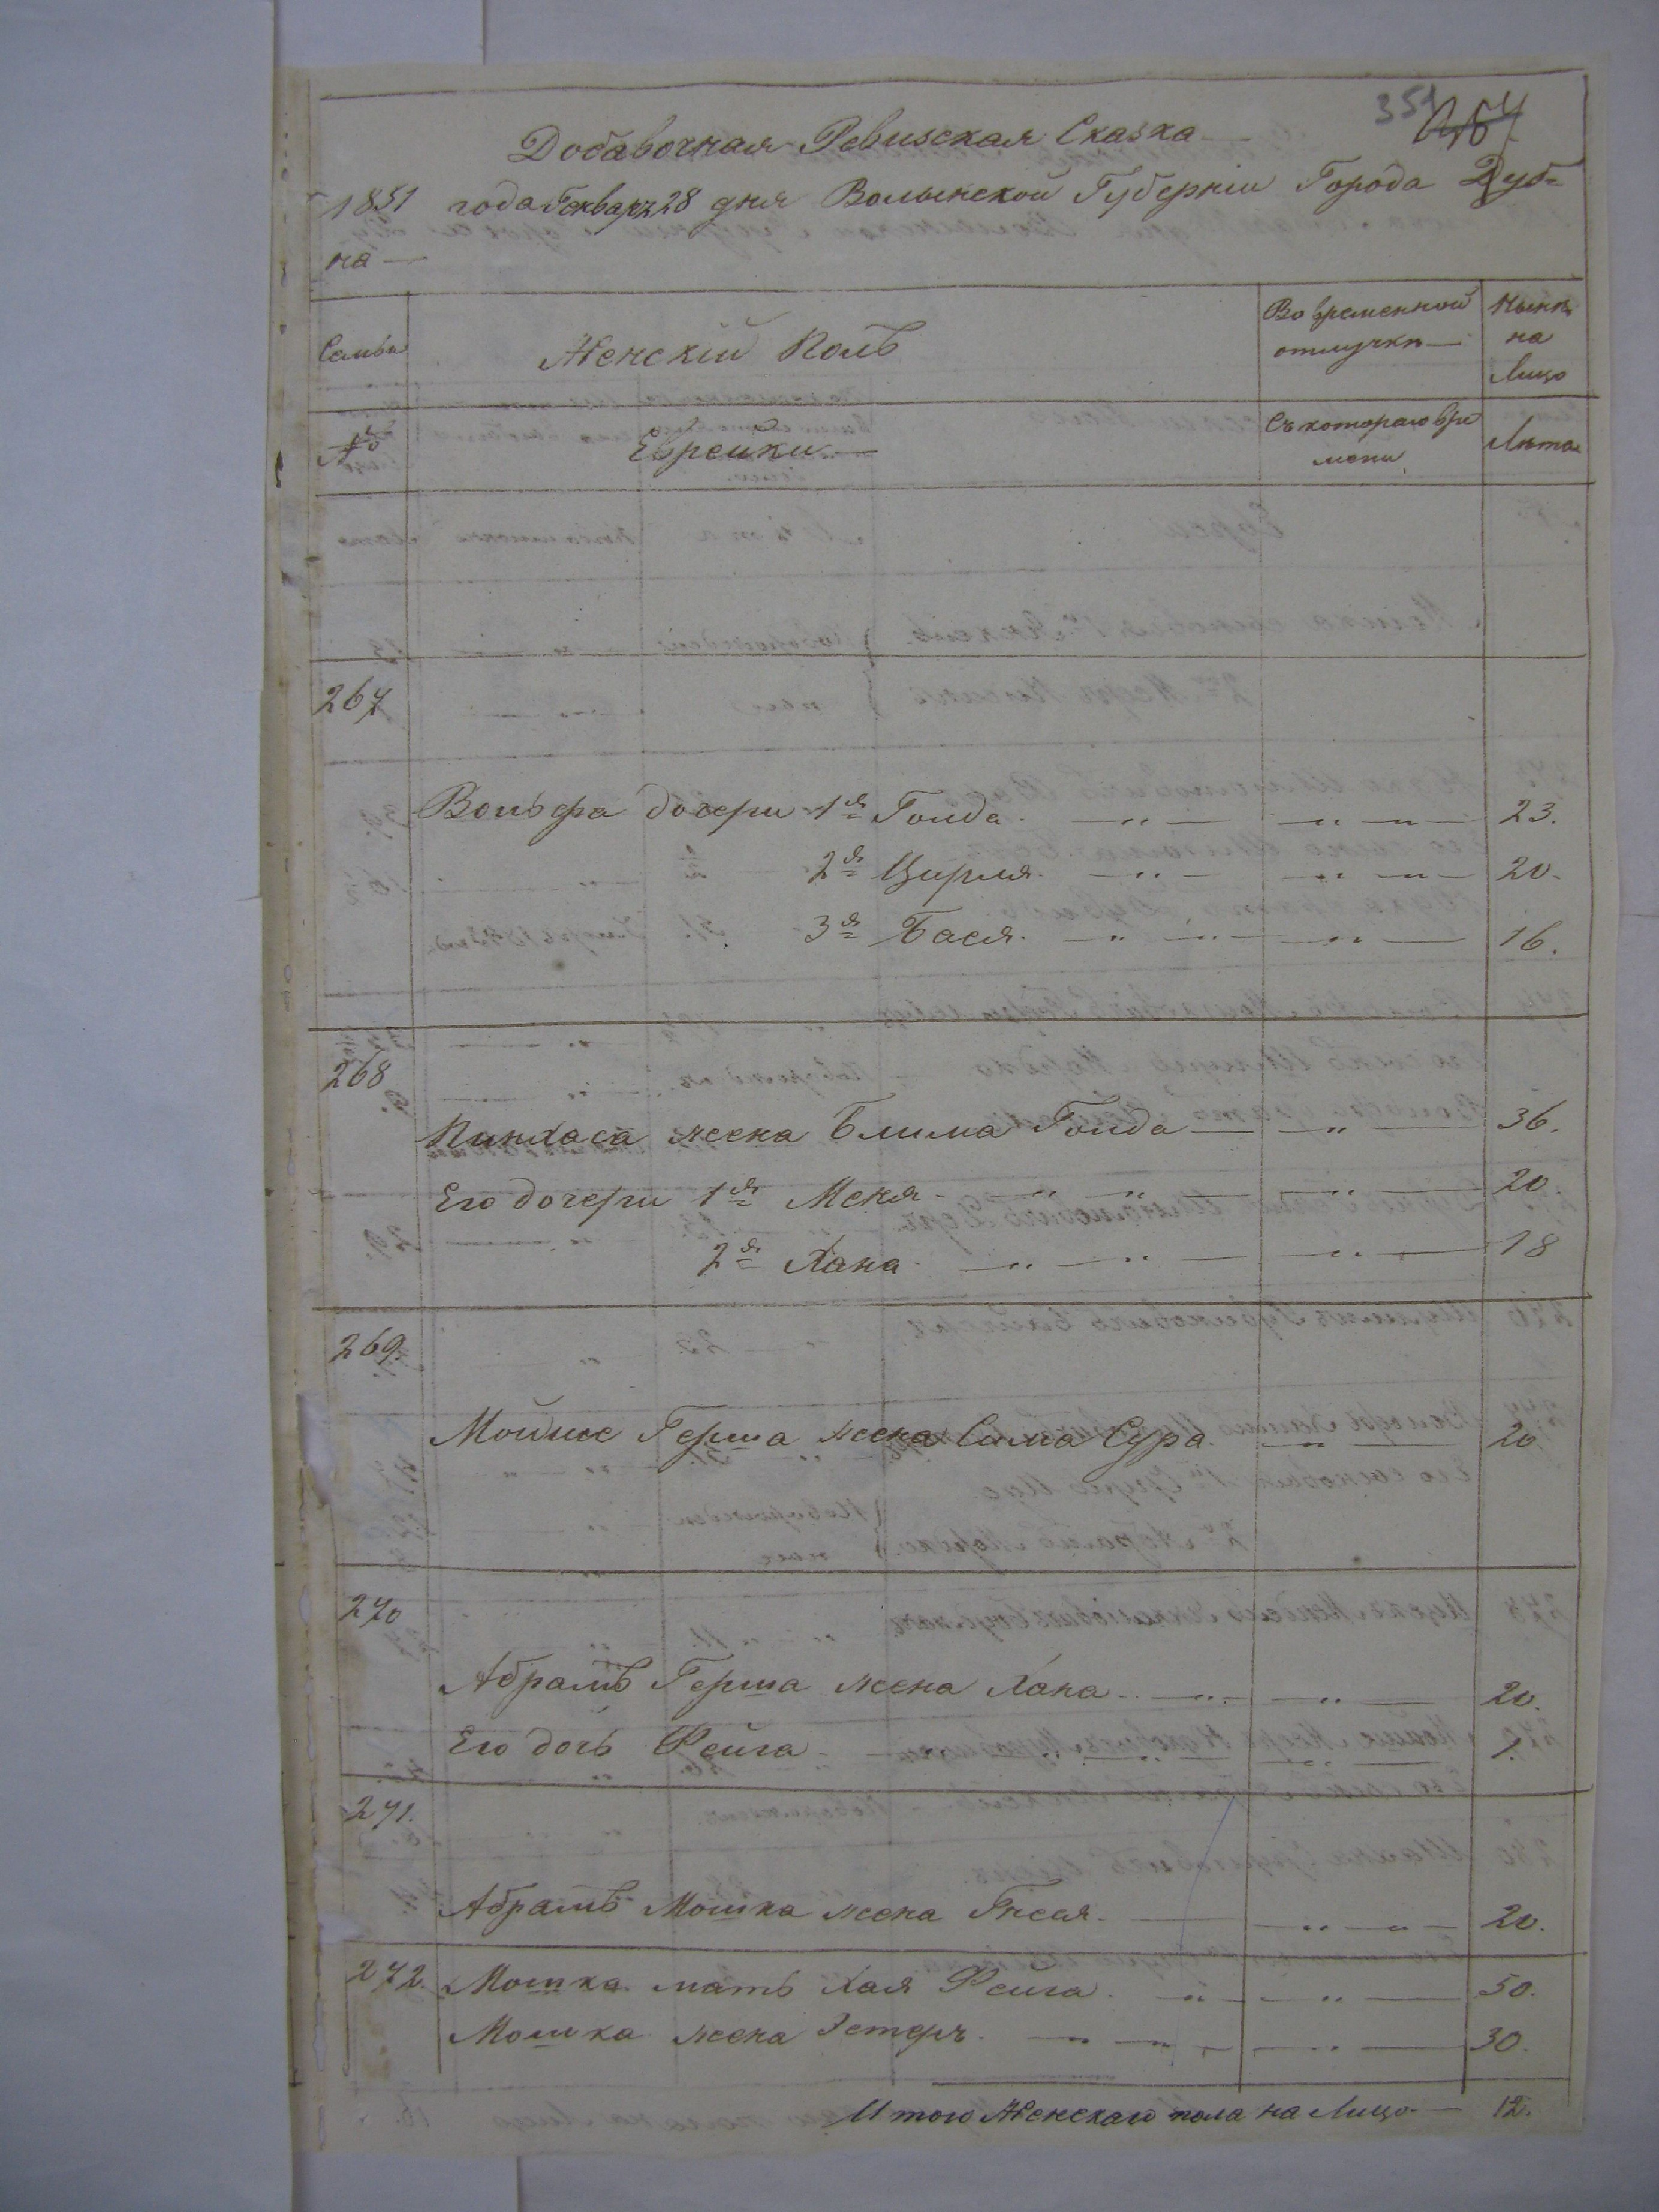 351
Добавочная Ревизская Сказка
1851 года Генваря 28 дня Волынской Губерніи Города Дуб-
на
Семьи
Женскій Полъ
Во временной отлучкѣ
Нынѣ на Лицо
№
Еврейки
Съ котораго времени
Лѣта
267
Вольфа дочери 1я Голда. 23.
2я Цирля. 20.
3я Бася. 16.
268
Пинхаса жена Блима Голда 36.
Его дочери 1я Меня 20.
2я Хана 18
269.
Мойше Герша жена Сима Сура. 20
270
Абрамъ Герша жена Хана 20.
Его дочь Фейга 1.
271.
Абрамъ Мошка жена Гнеся. 20.
272. Мошка мать Хая Фейга. 50.
Мошка жена Эстеръ. 30.
Итого Женскаго пола на Лицо 12.